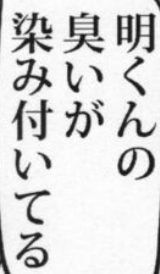 明くんの
臭いが
染み付いてる